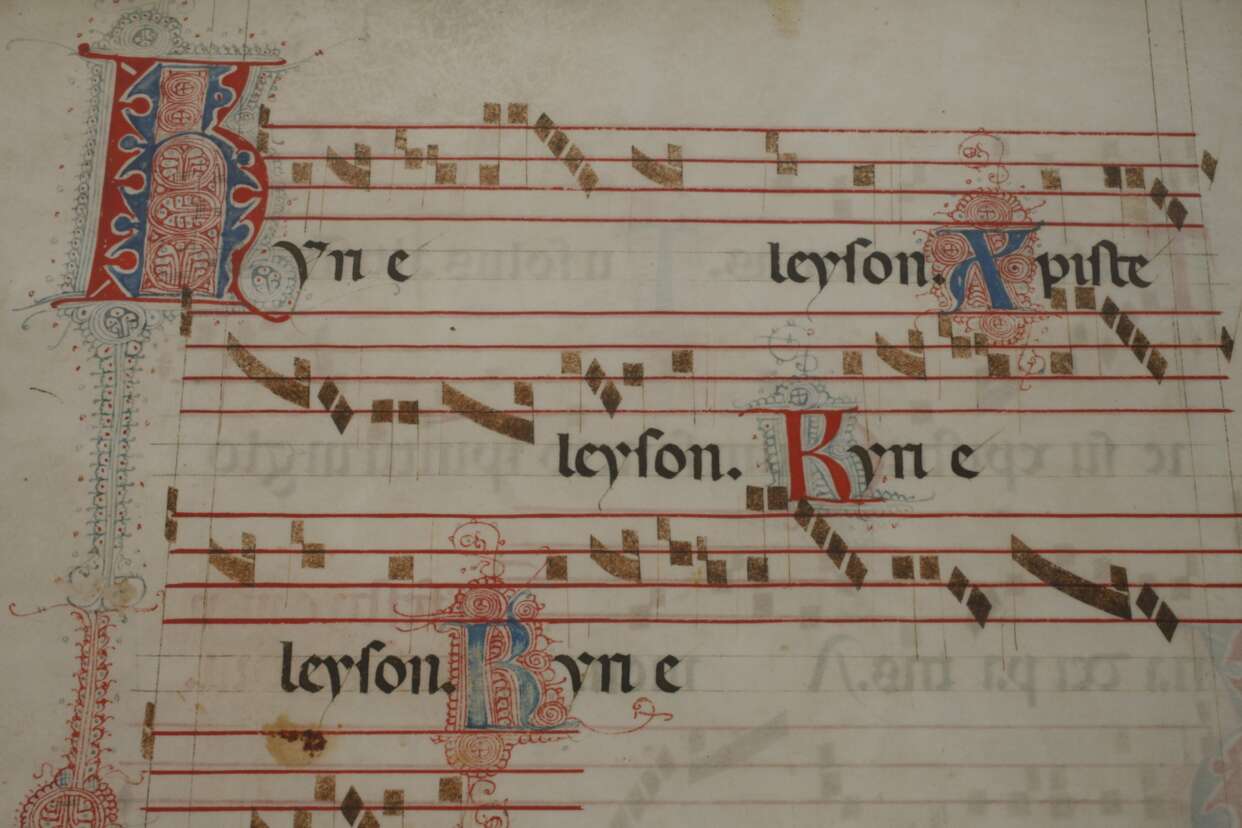 Kyrie leyson. Xpiste
leyson. Kyrie
leyson. Kyrie